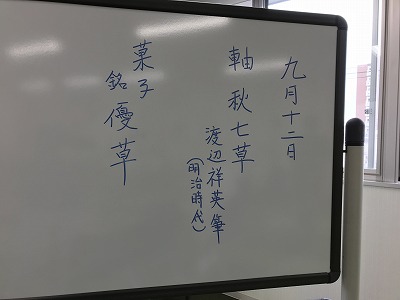 九月十二日
軸 秋七草
渡辺祥英筆
(明治時代)
菓子
銘 優草